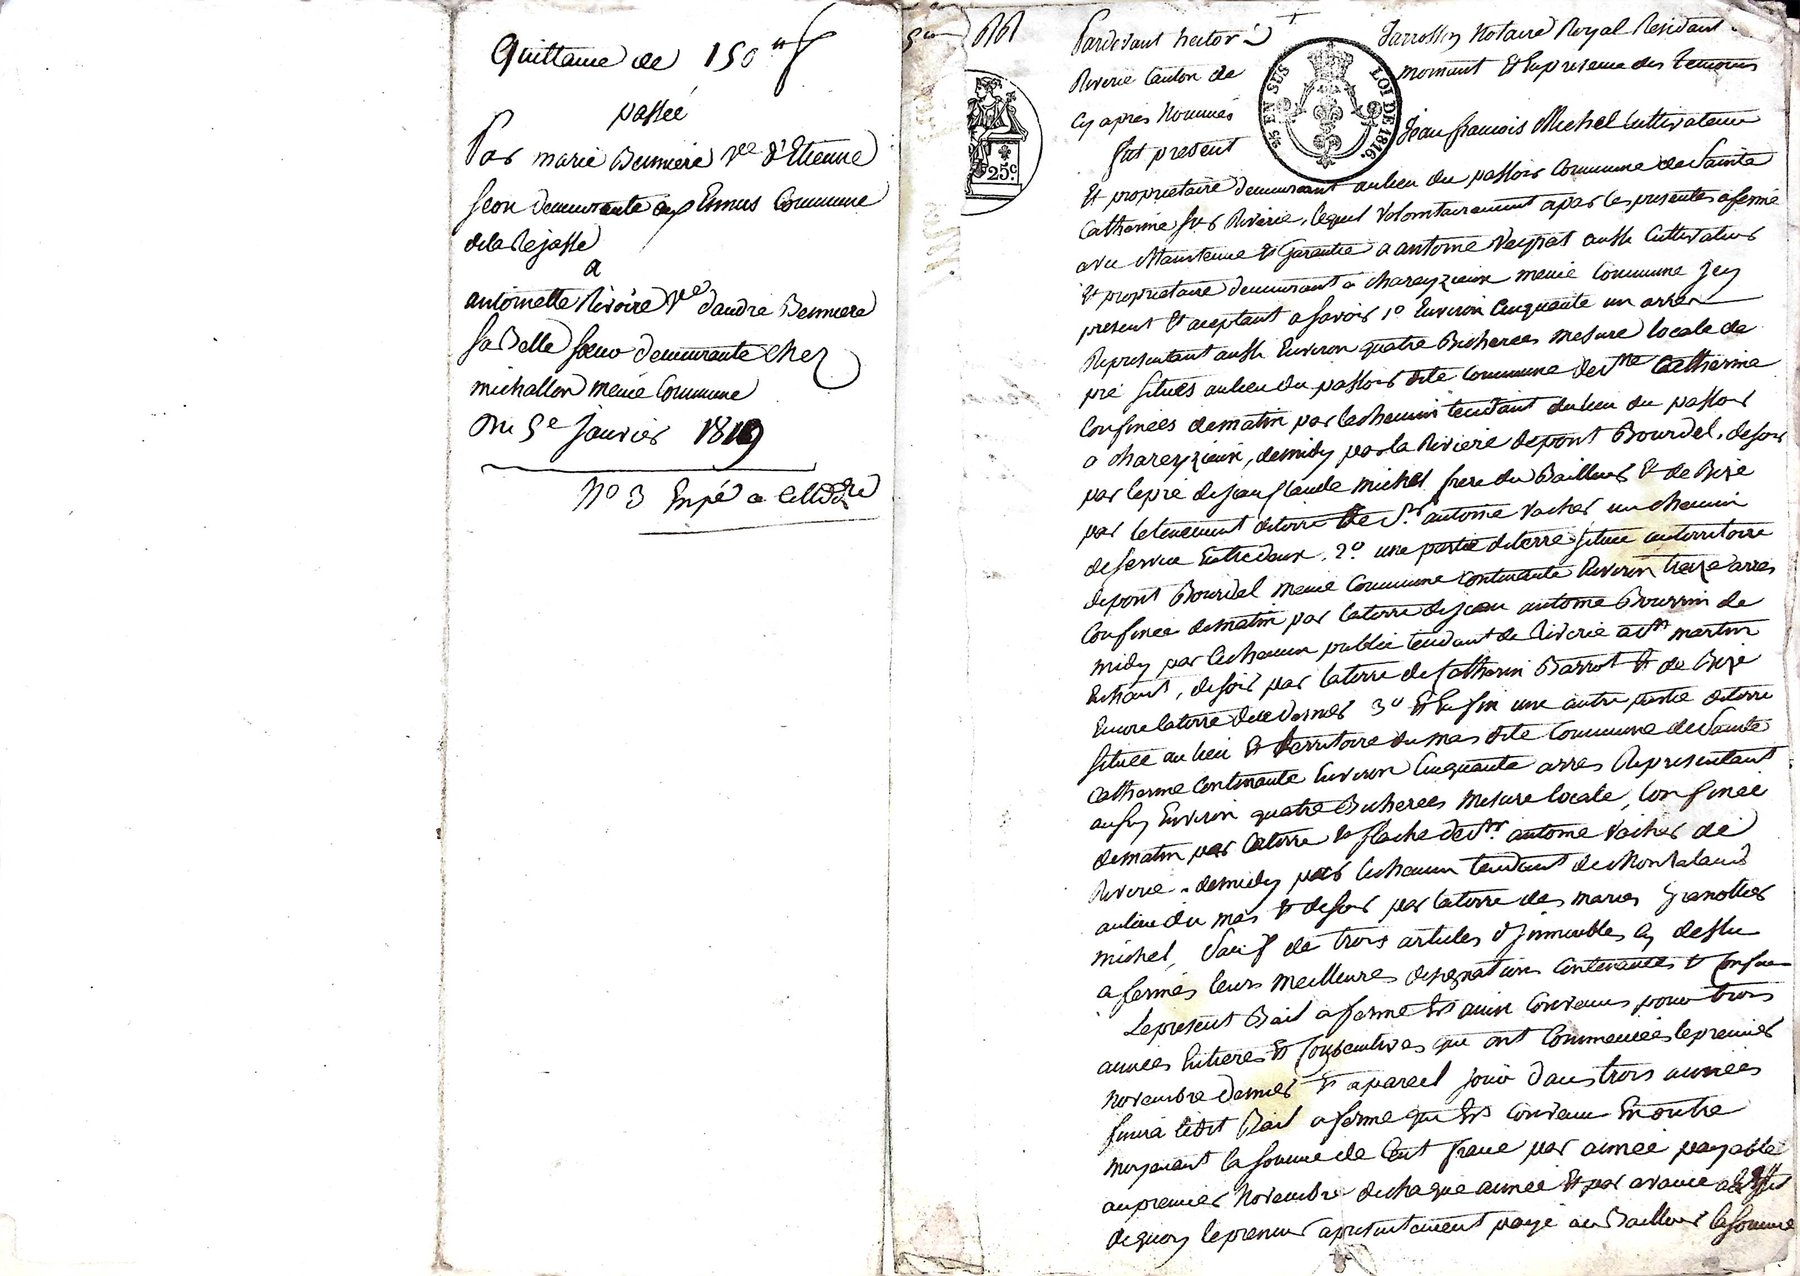 Quittance de 150 ʰ f
passée
Par marie Besmiere vᵉᵉ d'Etienne
Jeon demeurante aux Ennus Commune
de la Rejasse
a
antoinette Rivoire Vᵉᵉ d'andré Besmiere
sa Belle soeur demeurante chez
michallon meme Commune
Du 5ᵉ janvier 1819
N° 3 Enpé a
Pardevant hector
Jarrossey Notaire Royal Residant
Riverie Canton de
Mornant Et En presence des temoins
Cy apres Nommés
fut present
Jean francois Michel Cultivateur
25ᶜ EN SUS LOI DE 1816.
25ᶜ
Et proprietaire demeurant au lieu du passoir Commune de Sainte
Catherine sur Riverie, lequel Volontairement a par les presentes afermé
avec Maintenue Et Garantie a antoine Veyrat aussi Cultivateur
Et proprietaire demeurant a Chareyzieux meme Commune Jcy
present Et aceptant a savoir 1° Environ Cinquante un arres
Representant aussi Environ quatre Bicherees mesure locale de
pré situés au lieu du passoir dite Commune de Sᵗᵉ Catherine
Confinées de matin par le chemin tendant du lieu du passoir
a Chareyzieux, de midy par la Riviere de pont Bourdel, de soir
par le pré de jean Claude Michel frere du Bailleur Et de Bize
par le tenement de terre de Sʳ antoine Vacher un chemin
de service Entredeux. 2° une partie de terre située au territoire
de pont Bourdel meme Commune Contenante Environ treize arres
Confinée de matin par la terre de jean antoine Bourrin de
midy par le chemin public tendant de Riverie a Sᵗ martin
En haut, de soir par la terre de Catherin Barrot Et de Bize
Encore la terre de 3° Et Enfin une autre partie de terre
située au lieu Et territoire du mas dite Commune de Sainte
Catherine Contenante Environ Cinquante arres Representant
aussy Environ quatre Bicherees Mesure locale, Confinée
de matin par la terre Et flache de Sʳ antoine Vacher de
Riverie, de midy par le chemin tendant de
au lieu du mas Et de soir par la terre de
michel, Sauf de trois articles d'jmmeubles Cy dessu
afermés leurs meilleures designations Contenantes Et Confins
Le present Bail a ferme Est ainsi Convenus pour trois
années Entieres Et Consecutives qui ont Commencées le premier
Novembre dernier Et a pareil jour dans trois années
finira ledit Bail a ferme qui Est Convenu En outre
moyenant la somme de Cent franc par année payable
au premier Novembre de chaque année Et par avance
de quoy le preneur a presentement payé au Bailleur la somme